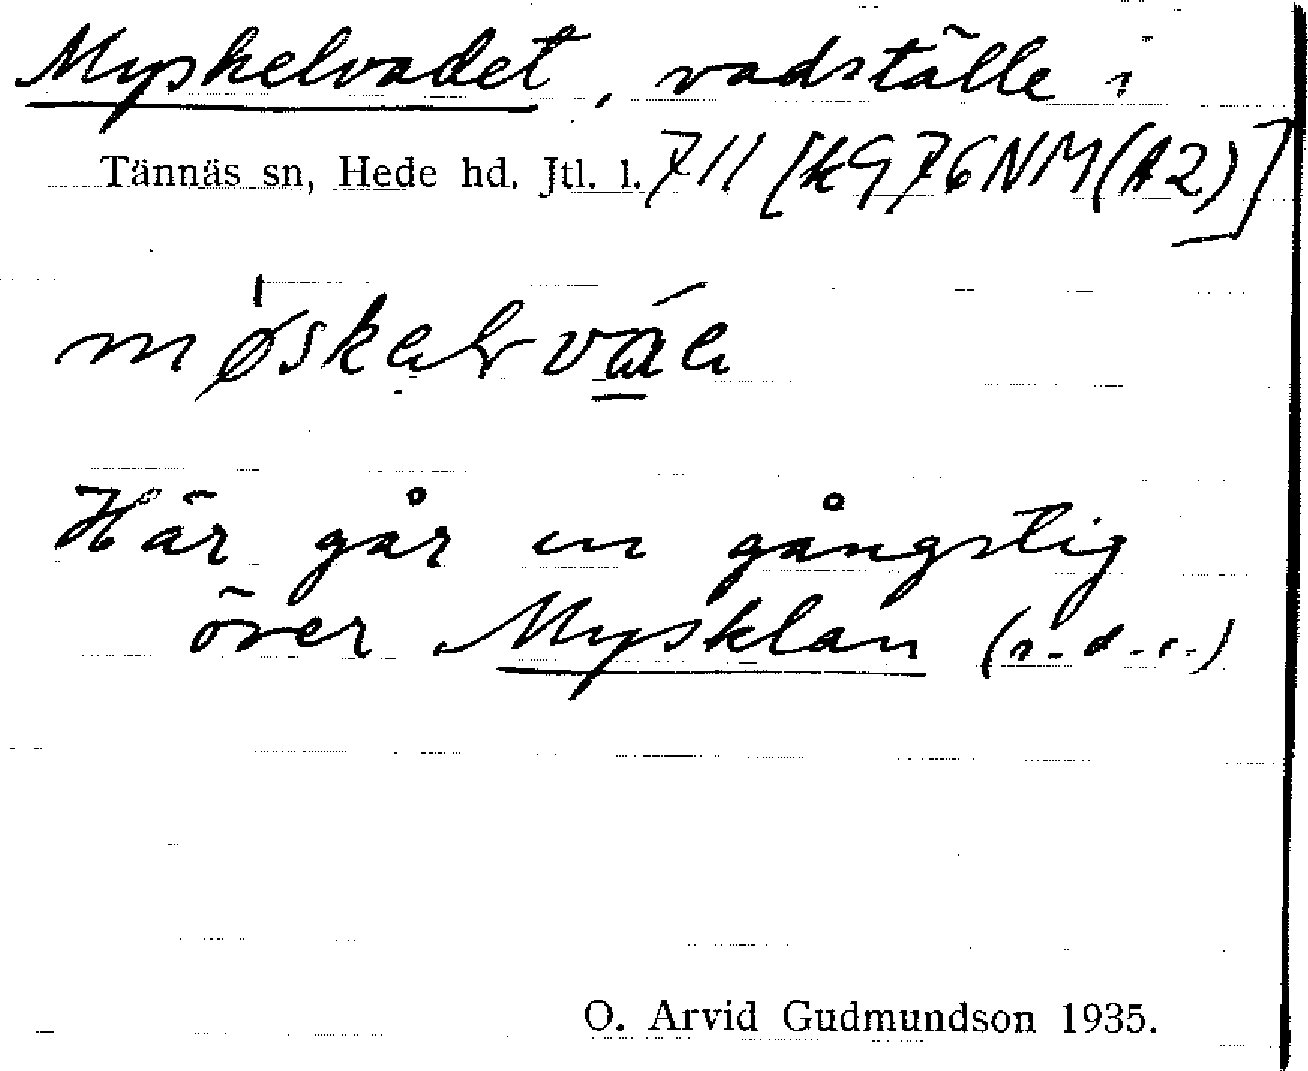 Myskelvadet, vadställe i
Tännäs sn, Hede hd. Jtl. l. 711 [KG76NM(A2)]
Här går en gångstig
över Mysklan (s.d.o.)
O. Arvid Gudmundson 1935.